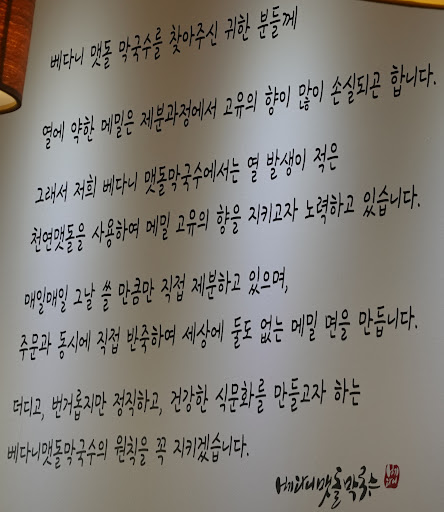 베다니 맷돌 막국수를 찾아주신 귀한 분들께
열에 약한 메밀은 제분과정에서 고유의 향이 많이 손실되곤 합니다.
그래서 저희 베다니 맷돌막국수에서는 열 발생이 적은
천연맷돌을 사용하여 메밀 고유의 향을 지키고자 노력하고 있습니다.
매일매일 그날 쓸 만큼만 직접 제분하고 있으며,
주문과 동시에 직접 반죽하여 세상에 둘도 없는 메밀 면을 만듭니다.
더디고, 번거롭지만 정직하고, 건강한 식문화를 만들고자 하는
베다니맷돌막국수의 원칙을 꼭 지키겠습니다.
베다니맷돌막국수